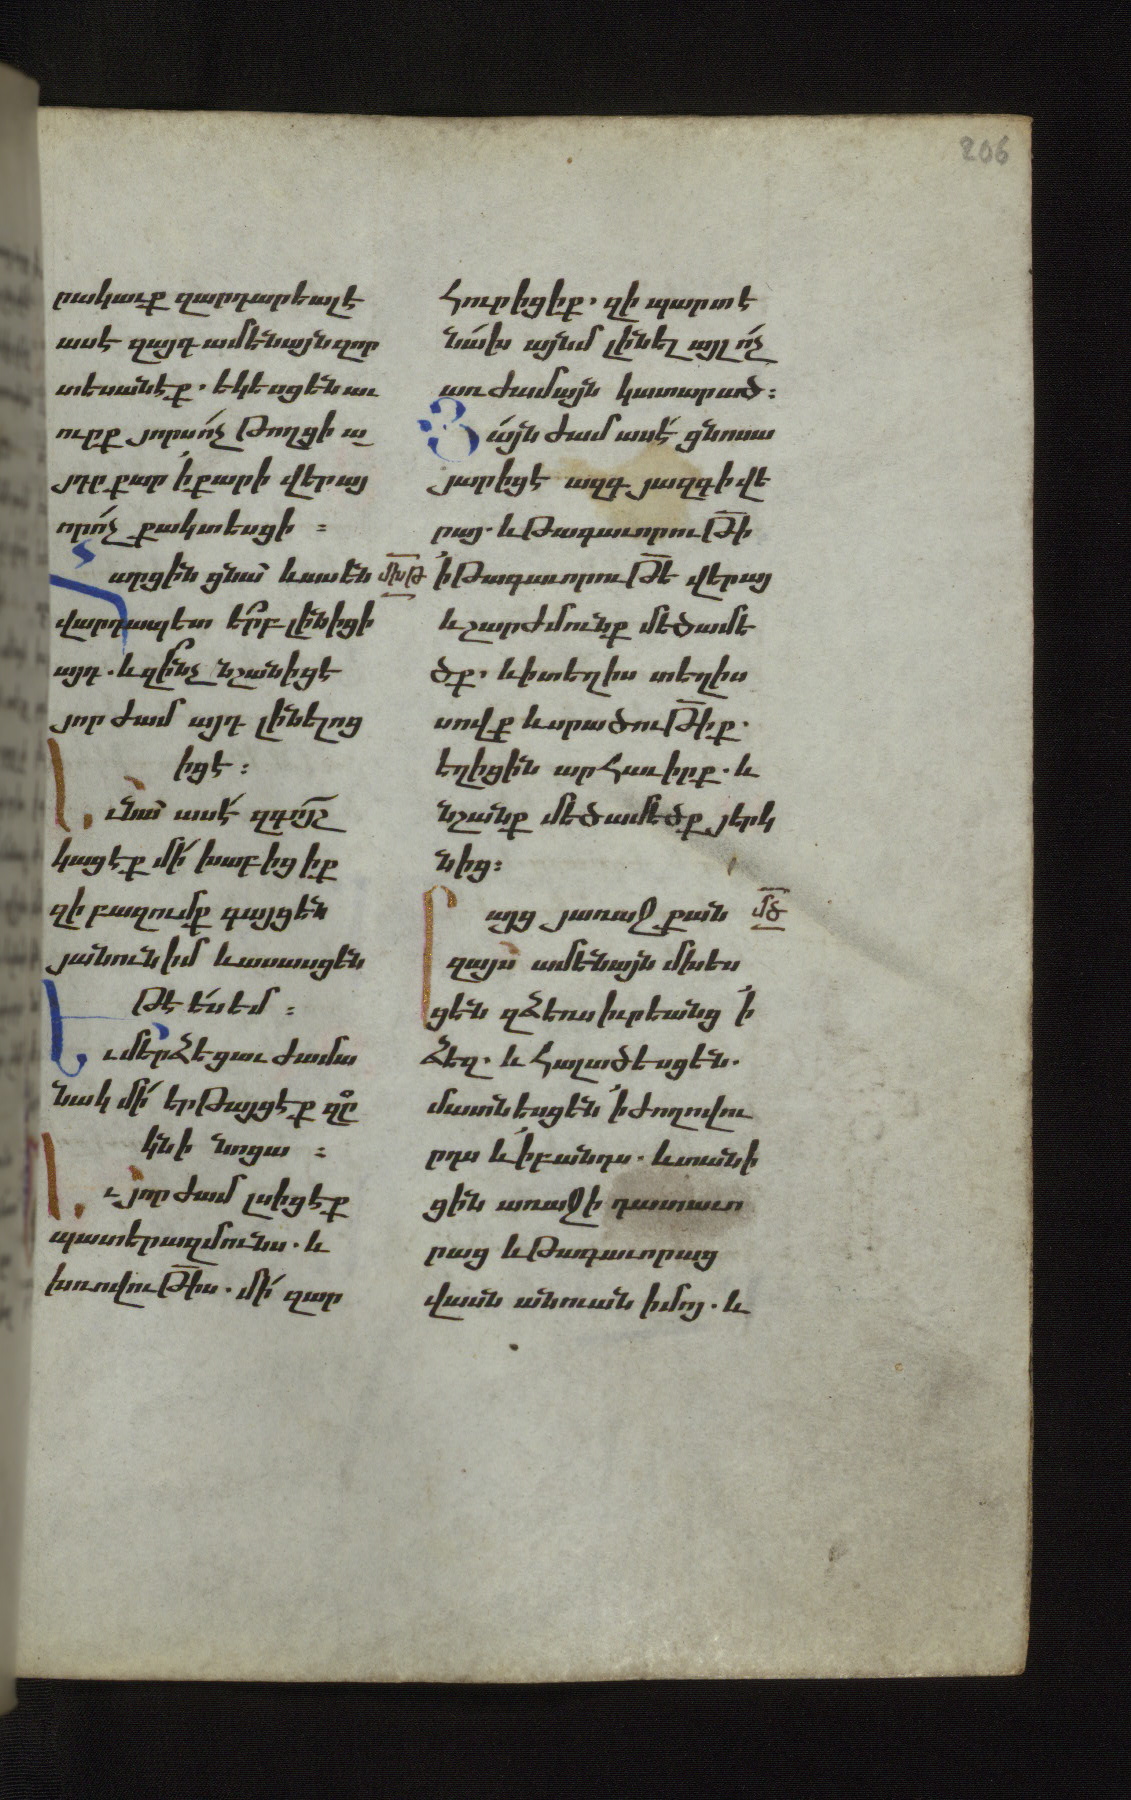 206
րակաւք զարդարեալ է
ասէ զայդ ամենայն զոր
տեսանէք. եկեսցեն աւ
ուրք յորս ո՛չ թողցի ա
յդր քար ՛ի քարի վերայ
որ ո՛չ քակտեսցի :
Հարցին ցնա՟ եւ ասեն
վարդապետ ե՞րբ լինիցի
այդ. և զի՞նչ նշան իցէ
յորժամ այդ լինելոց
իցէ :
Եւ նա՟ ասէ՛ զգո՜յշ
կացէք մի՛ խաբիցիք
զի բազումք գայցեն
յանուն իմ և ասասցեն
թե ե՛ս եմ :
Եւ մերձեցաւ ժամա
նակ մի՛ երթայցէք զը
կնի նոցա :
Եւ յորժամ լսիցէք
պատերազմունս. և
խռովութի՟ս. մի՛ զար
հուրիցիք. զի պարտ է
նա՛խ այնմ լինել այլ ո՛չ
առժամայն կատարած :
Յա՛յնժամ ասէ՛ ցնոսա
յարիցէ ազգ յազգի վե
րայ. և թագաւորութի՟
մխթ
՛ի թագաւորութե՟ վերայ
և շարժմունք մեծամե
ծք. և ի տեղիս տեղիս
սովք և սրածութի՟ք.
եղիցին արհաւիրք. և
նշանք մեծամեծք յերկ
նից :
Բայց յառաջ քան
մծ
զայս ամենայն մխես
ցեն զձեռս իւրեանց ՛ի
ձեզ. և հալածեսցեն.
մատնեսցեն ՛ի ժողովու
րդս և ՛ի բանդս. և տանի
ցին առաջի դատաւո
րաց և թագաւորաց
վասն անուան իմոյ. և